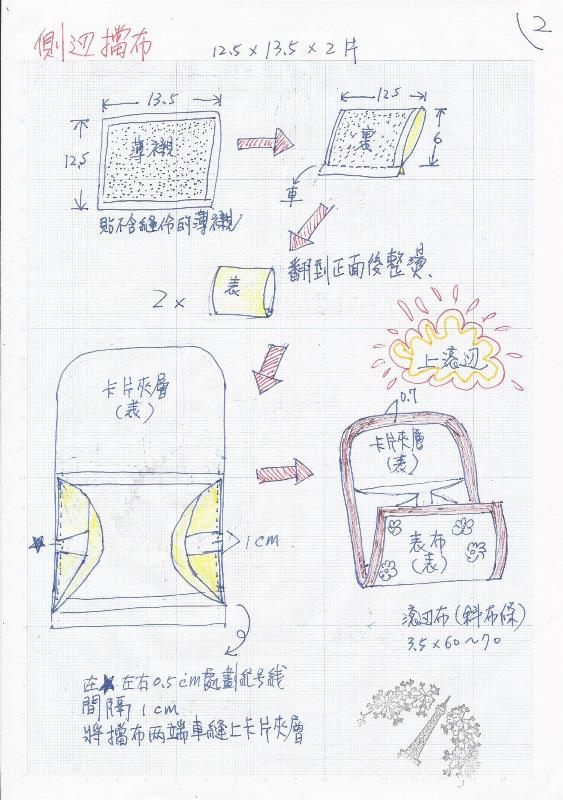 2
側边擋布 12.5 x 13.5 x 2片
13.5
12.5
薄襯
貼不含縫份的薄襯
12.5
6
裏
車
翻到正面後整燙.
2 x
表
上滾边
卡片夾層
(表)
1 cm
0.7
卡片夾層
(表)
表布
(表)
滾边布(斜布條)
3.5 x 60~70
在★左右0.5cm處劃記号線
間隔1cm
將擋布兩端車縫上卡片夾層